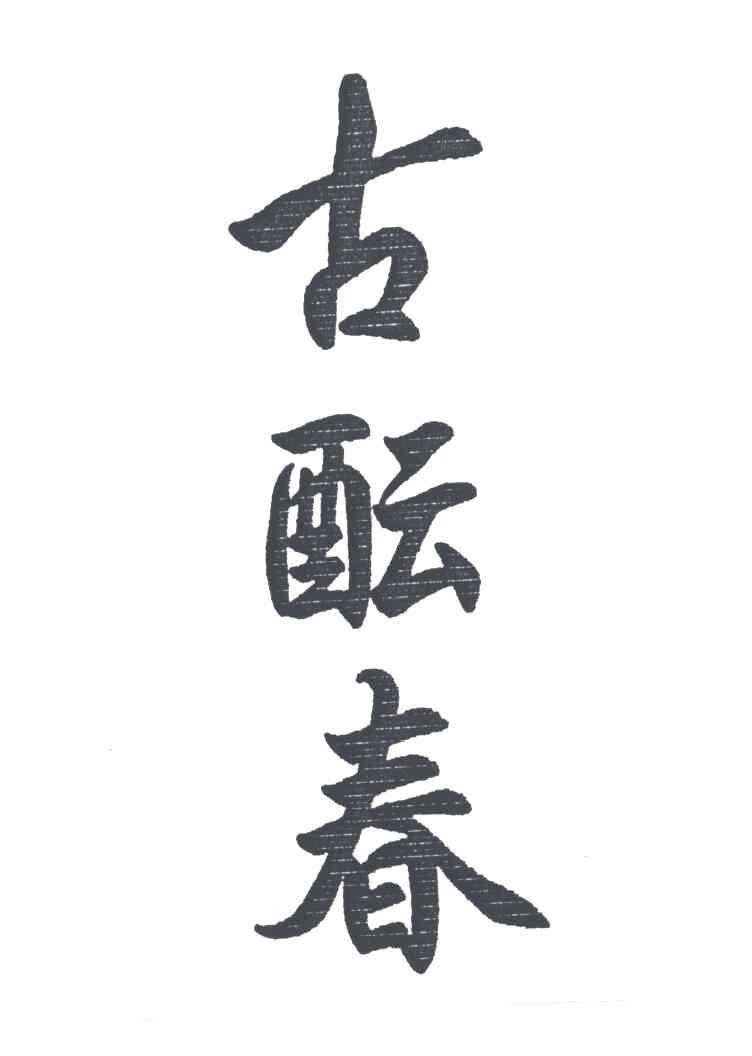 古酝春